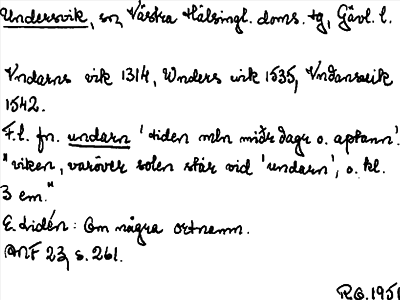 Undersvik, sn, Västra Hälsingl. doms. tg, Gävl. l.
Vndarns vik 1314, Wnders wik 1535, Vndansviik
1542.
F.l. fn. undarn 'tiden mln miðr dagr o. aptann'.
"viken, varöver solen står vid 'undarn', o. kl.
3 em."
E. Lidén: Om några ortnamn.
ANF 23, s. 261.
R.O. 1951